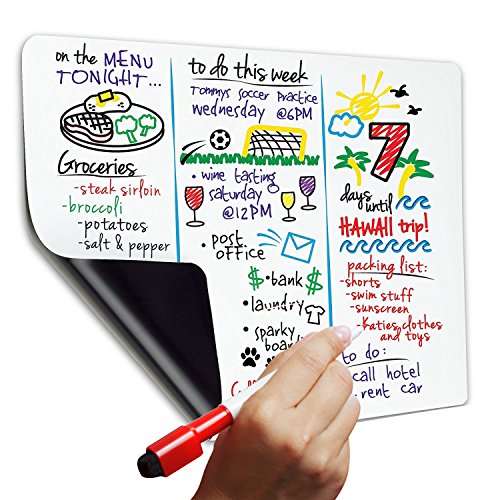 on the MENU
TONIGHT...
Groceries
-steak sirloin
-broccoli
-potatoes
-salt & pepper
to do this week
Tommys soccer practice
wednesday @6PM
• wine tasting
saturday
@12PM
• post
office
$ • bank $
• laundry
• sparky
7
days until
HAWAII trip!
packing list:
-shorts
-swim stuff
-sunscreen
-Katies clothes
and toys
to do:
call hotel
rent car